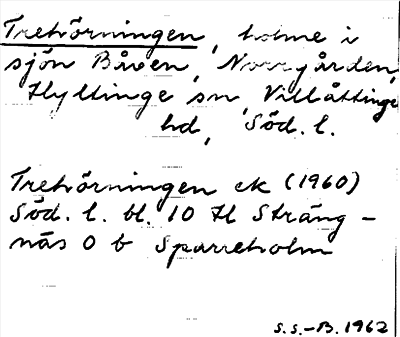 Trehörningen, holme i
sjön Båven, Norrgården,
Hyltinge sn, Villåttinge
hd, Söd. l.
Trehörningen ek (1960)
Söd. l. bl. 10 H Sträng-
näs O b Sparreholm
S.S.-B. 1962